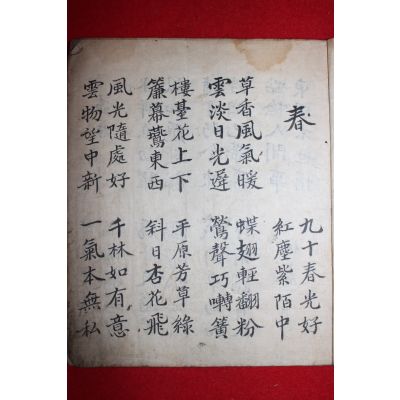 春
九十春光好
紅塵紫陌中
草香風氣暖 蝶翅輕翻粉
雲淡日光遲 鶯聲巧囀簧
樓臺花上下 平原芳草綠
簾幕鷰東西 斜日杏花飛
風光隨處好 千林如有意
雲物望中新 一氣本無私